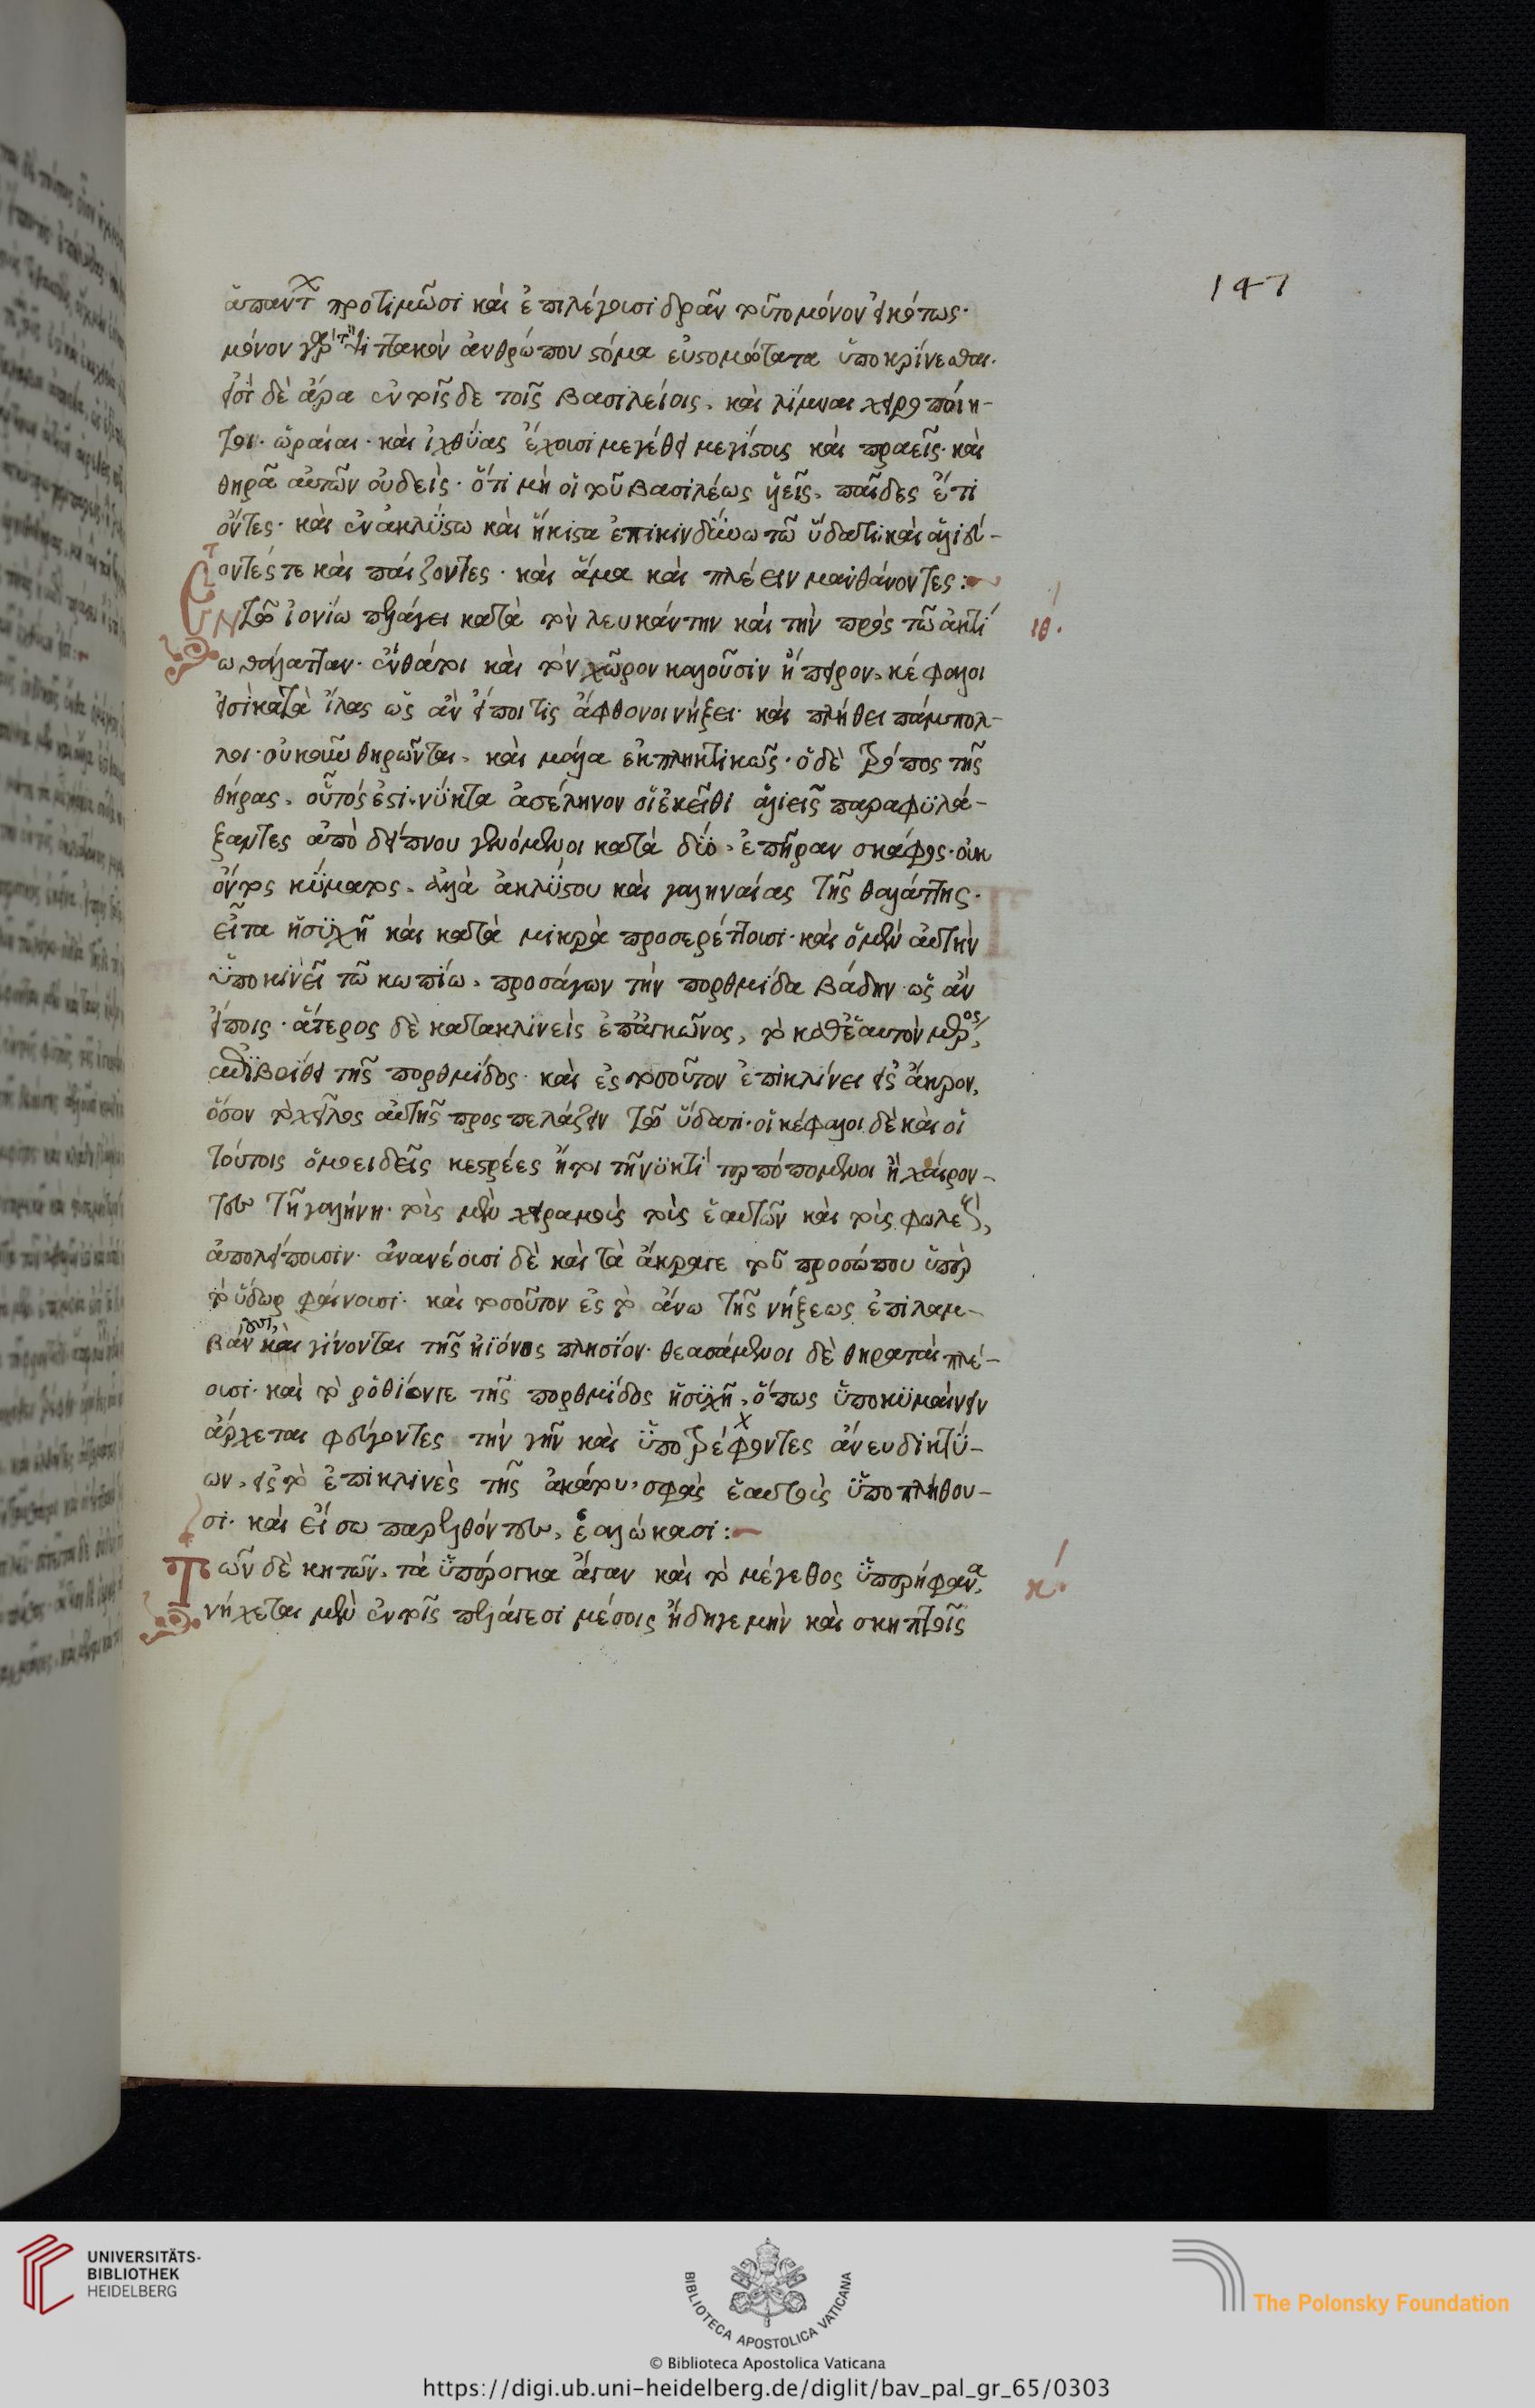 147
ἅπαντ προτιμῶσι καὶ ἐπιλέγουσι δρᾶν τοῦτο μόνον εἰκότως·
μόνον γὰρ ψιττακὸν ἀνθρώπου στόμα εὐστομώτατα ὑποκρίνεσθαι.
εἰσὶ δὲ ἄρα ἐν τοῖς δε τοῖς βασιλείοις, καὶ λίμναι χειροποίη-
τοι· ὡραῖαι· καὶ ἰχθύας ἔχουσι μεγέθει μεγίστους καὶ πραεῖς· καὶ
θηρᾷ αὐτῶν οὐδεὶς· ὅτι μὴ οἱ τοῦ βασιλέως υἱεῖς, παῖδες ἔτι
ὄντες· καὶ ἐν ἀκλύστω καὶ ἥκιστα ἐπικινδύνω τῶ ὕδατι καὶ ἁλιεύ-
οντές τε καὶ παίζοντες· καὶ ἅμα καὶ πλέειν μανθάνοντες:
Ἐν τῷ ἰονίω πελάγει κατὰ τὴν λευκάντην καὶ τὴν πρὸς τῶ ἀκτί
ιθ.
ω θάλατταν· ἔνθά τοι καὶ τὸν χῶρον καλοῦσιν ἤπειρον, κέφαλοι
εἰσὶ κατὰ ἴλας ὡς ἂν εἴποι τις ἄφθονοι νήξει· καὶ πλήθει πάμπολ-
λοι· οὐκοῦν θηρῶνται, καὶ μάλα ἐκπληκτικῶς· ὁ δὲ τρόπος τῆς
θήρας, οὗτός ἐστι· νύκτα ἀσέληνον οἱ ἐκεῖθι ἁλιεῖς παραφυλά-
ξαντες ἀπὸ δείπνου γενόμενοι κατὰ δύο, ἐπῆραν σκάφος· οὐκ
ὄντος κύματος, ἀλλὰ ἀκλύστου καὶ γαληναίας τῆς θαλάττης·
εἶτα ἡσυχῆ καὶ κατὰ μικρὰ προσερέττουσι· καὶ ὁ μὲν αὐτὴν
ὑποκινεῖ τῶ κωπίω, προσάγων τὴν πορθμίδα βάδην ὡς ἂν
εἴποις· ἅτερος δὲ κατακλινεὶς ἐπ' ἀγκῶνος, τὸ καθ' ἑαυτὸν μέρος,
ἀντιβρίθει τῆς πορθμίδος· καὶ ἐς τοσοῦτον ἐπικλίνει εἰς ἄκρον,
ὅσον τὸ χεῖλος αὐτῆς προσπελάζειν τῷ ὕδατι· οἱ κέφαλοι δὲ καὶ οἱ
τούτοις ὁμοειδεῖς κεστρέες ἤτοι τῆ νυκτὶ τερπόμενοι ἢ χαίρον-
τες τῆ γαλήνη· τοὺς μὲν χηραμοὺς τοὺς ἑαυτῶν καὶ τοὺς φωλε,
ἀπολείπουσιν· ἀνανέουσι δὲ καὶ τὰ ἄκρα γε τοῦ προσώπου ὑπὲρ
τὸ ὕδωρ φαίνουσι· καὶ τοσοῦτον ἐς τὸ ἄνω τῆς νήξεως ἐπιλαμ-
βάνουσι, καὶ γίνονται τῆς ἠϊόνος πλησίον· θεασάμενοι δὲ θηραταὶ πλέ-
ουσι· καὶ τὸ ῥόθιόν γε τῆς πορθμίδος ἡσυχῆ, ὅπως ὑποκυμαίνειν
ἄρχεται φεύγοντες τὴν γῆν καὶ ὑποτρέφοντες ἄνευ δικτύ-
ων, εἰς τὸ ἐπικλινὲς τῆς ἀκάτου, σφᾶς ἑαυτοὺς ὑποπλήθου-
σι· καὶ εἴσω παρελθόντες, ἑαλώκασι:
Τῶν δὲ κητῶν, τὰ ὑπέρογκα ἄγαν καὶ τὸ μέγεθος ὑπερήφανα,
κ.
νήχεται μὲν ἐν τοῖς πελάγεσι μέσοις ἤδη γε μὴν καὶ σκηπτοῖς
UNIVERSITÄTS-
BIBLIOTHEK
HEIDELBERG
BIBLIOTECA APOSTOLICA VATICANA
The Polonsky Foundation
© Biblioteca Apostolica Vaticana
https://digi.ub.uni-heidelberg.de/diglit/bav_pal_gr_65/0303